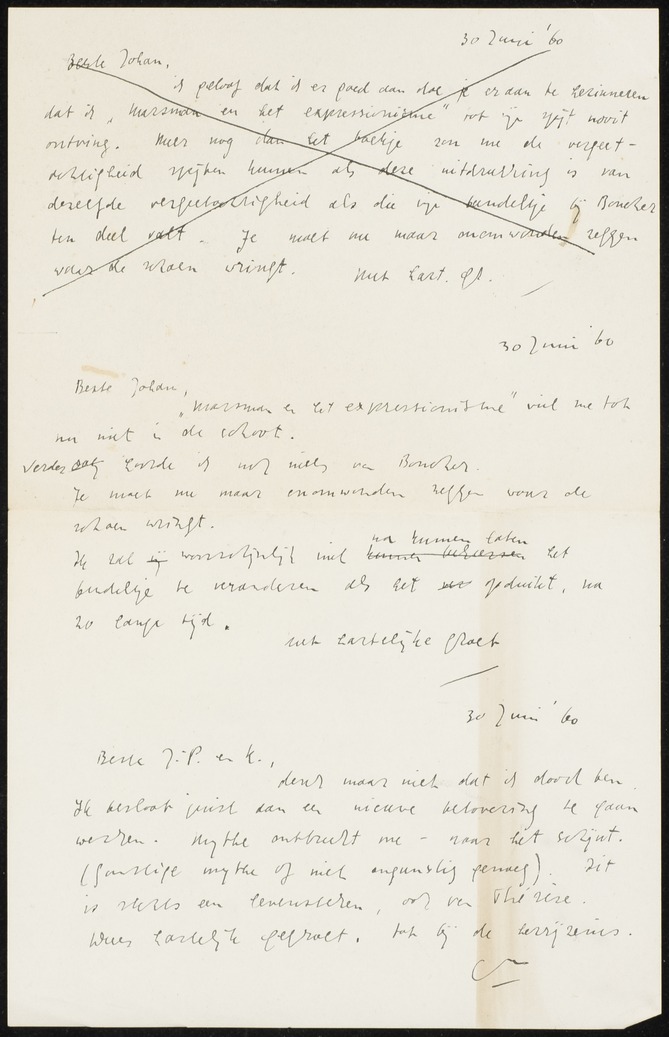 30 Juni '60
Beste Johan,
ik geloof dat ik er goed aan doe je eraan te herinneren
dat ik „Marsman en het expressionisme" tot op nooit
ontving. Meer nog dan het boekje zou me de vergeet-
achtigheid spijten kunnen als deze uitdrukking is van
dezelfde vergeetachtigheid als die mijn bundeltje bij Boucher
ten deel valt. Je moet me maar onomwonden zeggen
waar de schoen wringt. Met hart. gr.
30 Juni '60
Beste Johan,
„Marsman en het expressionisme" viel me tot
nu niet in de schoot.
Verder hoorde ik nog niets van Boucher.
Je moet me maar onomwonden zeggen waar de
schoen wringt.
na kunnen laten
Ik zal waarschijnlijk niet kunnen beheersen het
bundeltje te veranderen als het opduikt, na
zo lange tijd.
met hartelijke groet
30 Juni '60
Beste J.P. en K.,
denk maar niet dat ik dood ben.
Ik besloot juist aan een nieuwe betovering te gaan
werken. Mythe ontbreekt me – naar het schijnt.
(Gunstige mythe of niet ongunstig genoeg). Dit
is steeds een levensteken, ook van Thérèse.
Wees hartelijk gegroet. tot bij de herrijzenis.